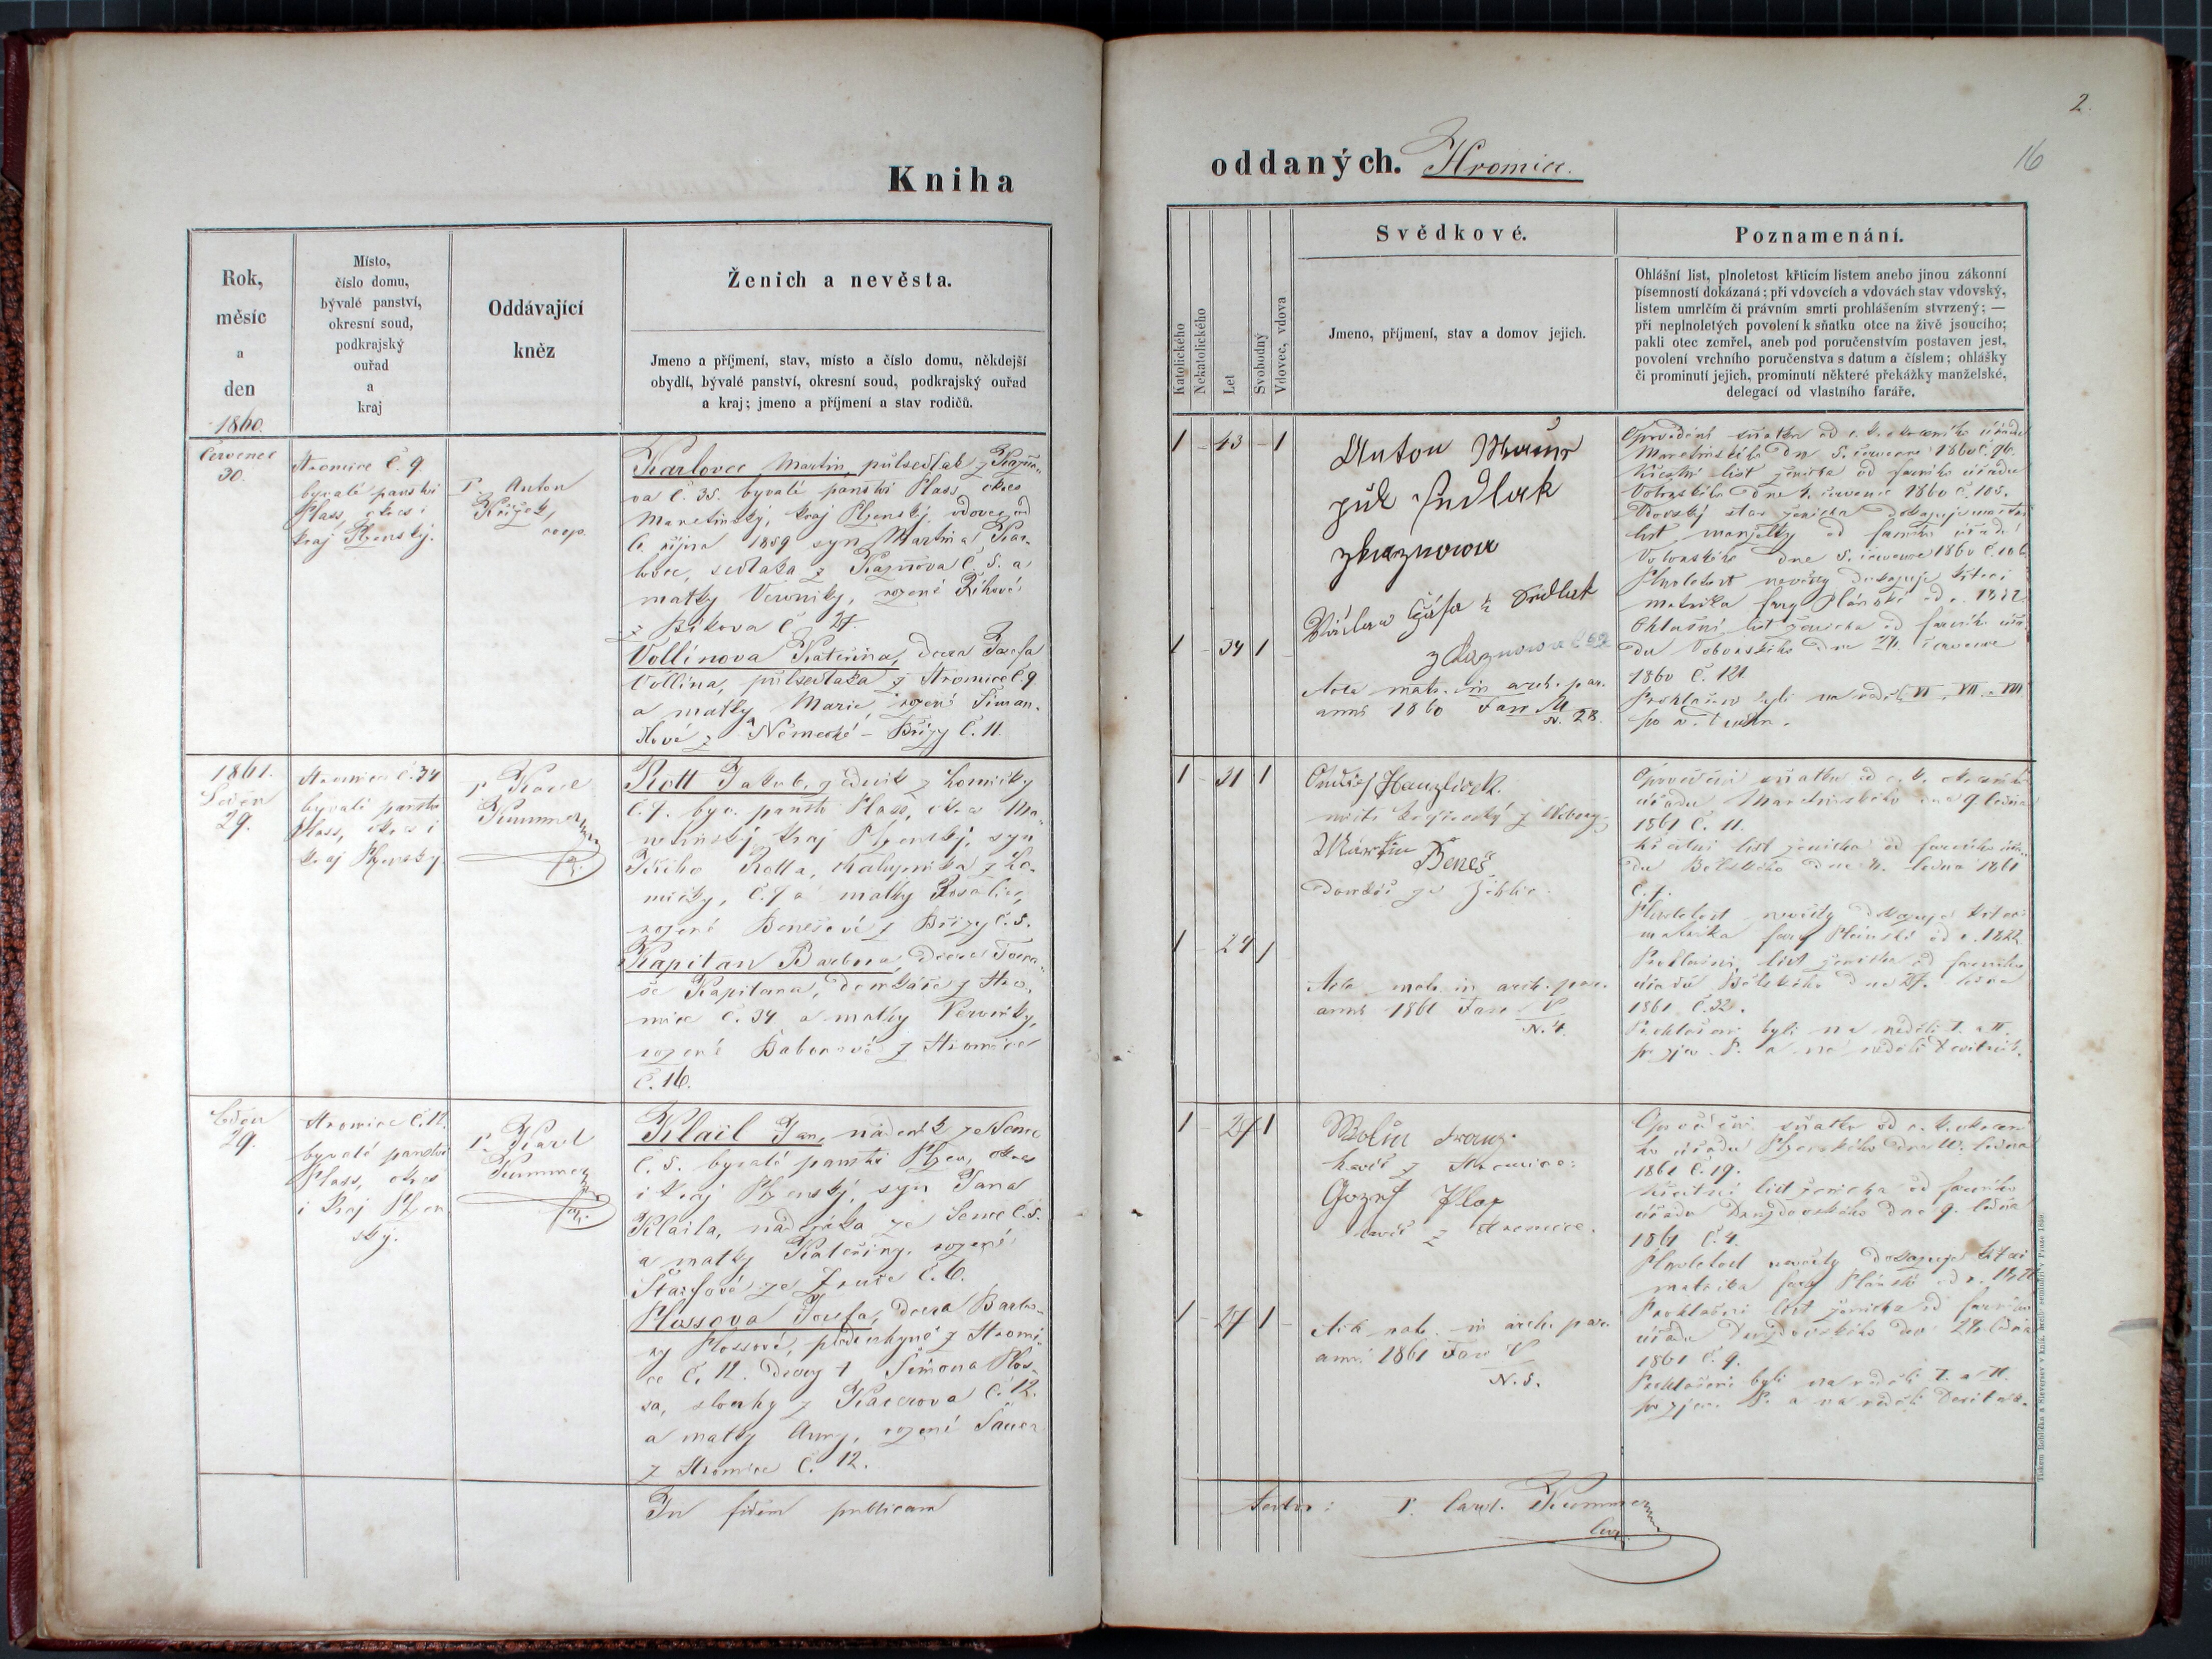 Kniha
Rok,
měsíc
a
den
1860.
Místo,
číslo domu,
bývalé panství,
okresní soud,
podkrajský
ouřad
a
kraj
Oddávající
kněz
Ženich a nevěsta.
Jmeno a příjmení, stav, místo a číslo domu, někdejší
obydlí, bývalé panství, okresní soud, podkrajský ouřad
a kraj; jmeno a příjmení a stav rodičů.
Červenec
30.
Hromice č. 9
bývalé panství
Plass, okres i
kraj Plzenský.
P. Anton
Křížek,
coop.
Karlovec Martin, půlsedlák z Kazňo-
va č. 35. bývalé panství Plass, okres
Manetinský, kraj Plzenský, vdovec od
6. října 1859 syn Martina Kar-
lovec, sedláka z Kazňova č. 5. a
matky Veroniky, rozené Říhové
z Bíkova č. 27.
Vollinova Kateřina, dcera Josefa
Vollina, půlsedláka z Hromice č. 9
a matky Marie, rozené Siman-
dlové z Německé - Břízy č. 11.
1861.
Leden
29.
Hromice č. 34
bývalé panství
Plass, okres i
kraj Plzenský
P. Karel
Kummer
Rott Jakub, z Lomničky
č. 7. býv. panství Plass, okres Ma-
netinský, kraj Plzenský, syn
Jiřího Rotta, chalupníka z Lo-
mničky, č. 7 a matky Rosalie,
rozené Benešové z Břízy č. 5.
Kapitan Barbora, dcera Toma-
še Kapitana, domkáře z Hro-
mice č. 34 a matky Veroniky,
rozené z Hromice
č. 16.
Leden
29.
Hromice č. 12.
bývalé panství
Plass, okres
i kraj Plzen
ský.
P. Karel
Kummer
Klail Jan, nádeník ze Senec
č. 5. bývalé panství Plzen, okres
i kraj Plzenský, syn Jana
Klaila, nádeníka ze Senec č. 5.
a matky Kateřiny, rozené
ze Zruče č. 6.
Plossova Josefa, dcera Barbo-
ry Plossové, z Hromi-
ce č. 12. dcery † Šimona Plos-
sa, slouhy z Kacerova č. 12.
a matky Anny, rozené
z Hromice č. 12.
In fidem publicam
2.
16
oddaných. Hromice.
Katolického
Nekatolického
Let
Svobodný
Vdovec, vdova
Svědkové.
Jmeno, příjmení, stav a domov jejich.
Poznamenání.
Ohlášní list, plnoletost křticím listem anebo jinou zákonní
písemností dokázaná; při vdovcích a vdovách stav vdovský,
listem umrlčím či právním smrti prohlášením stvrzený; —
při neplnoletých povolení k sňatku otce na živě jsoucího;
pakli otec zemřel, aneb pod poručenstvím postaven jest,
povolení vrchního poručenstva s datum a číslem; ohlášky
či prominutí jejich, prominutí některé překážky manželské,
delegací od vlastního faráře.
1 - 43 - 1
Anton
půl Sedlak
zkaznowa
Sedlak
z Kaznowa č 52
1 - 34 1 -
Acta matr. in arch. par.
anni 1860 Fasc
N. 28.
Osvědčení sňatku od c. k. okresního úřadu
Manetinského dn 5. července 1860 č. 96.
Křestní list ženicha od farního úřadu
dne 4. července 1860 č. 105.
Vdovský stav ženicha dokazuje
list manželky od farního úřadu
dne 5. července 1860 č. 106
Plnoletost nevěsty dokazuje křticí
matrika fary Plánské od r.
Ohlašní list ženicha od farního úřa-
du dne července
1860 č. 121.
Prohlášeni byli na neděli VI. VII. a VIII
po
1 - 31 1
Hanzlíček
Martin Beneš
Domkář ze Žihle
1 - 24 1
Acta matr. in arch. par.
anni 1861 Fasc V
N. 4.
Osvědčení sňatku od c. k. okresního
úřadu Manetinského dne 9. ledna
1861 č. 11.
Křestní list ženicha od farního úřa-
du dne ledna 1861
Plnoletost nevěsty dokazuje křticí
matrika fary Plánské od r.
Prohlašní list ženicha od farního
úřadu dne 27. ledna
1861 č. 32.
Prohlášeni byli na neděli I. a II.
po zjev. P. a na neděli Devitník.
1 - 27 1
Wolin Franz
havíř z Hromice:
Gozef Plos
havíř z Hromice.
1 - 27 1 -
Acta matr. in arch. par.
anni 1861 Fasc V
N. 5.
Osvědčení sňatku od c. k. okresní
ho úřadu Plzenského dne 10. ledna
1861 č. 19.
Křestní list ženicha od farního
úřadu dne 9. ledna
1861 č. 4.
Plnoletost nevěsty dokazuje křticí
matrika fary Plánské od r.
Prohlašní list ženicha od farního
úřadu dne ledna
1861 č. 9.
Prohlášeni byli na neděli I. a II.
po zjev. P. a na neděli Devitník.
P. Carol. Kummer
Tiskem Rohlíčka a Sieversev v knih. arcib. semináři v Praze